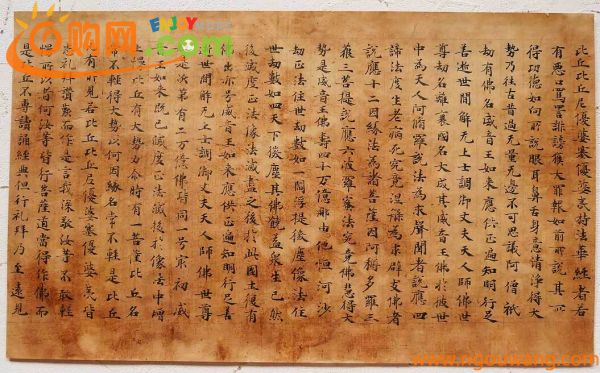 比丘比丘尼優婆塞優婆夷持法華經者若
有惡口罵詈誹謗獲大罪報如前所說其所
得功德如向所說眼耳鼻舌身意清淨得大
勢乃往古昔過無量無邊不可思議阿僧祇
劫有佛名威音王如來應供正遍知明行足
善逝世間解無上士調御丈夫天人師佛世
尊劫名離衰國名大成其威音王佛於彼世
中為天人阿脩羅說法為求聲聞者說應四
諦法度生老病死究竟涅槃為求辟支佛者
說應十二因緣法為諸菩薩因阿耨多羅三
藐三菩提說應六波羅蜜法究竟佛慧得大
勢是威音王佛壽四十萬億那由他恒河沙
劫正法住世劫數如一閻浮提微塵像法住
世劫數如四天下微塵其佛饒益眾生已然
後滅度正法像法滅盡之後於此國土復有
出亦号威音王如來應供正遍知明行足善
逝世間解無上士調御丈夫天人師佛世尊
是次第有二万億佛皆同一号最初威
音王如來既已滅度正法滅後於像法中增
上慢比丘有大勢力尒時有一菩薩比丘名
常不輕得大勢以何因緣名常不輕是比丘
有所見若比丘比丘尼優婆塞優婆夷皆
悉礼拜讚歎而作是言我深敬汝等不敢輕
慢所以者何汝等皆行菩薩道當得作佛而
是比丘不專讀誦經典但行礼拜乃至遠見
e购网
EJYGO
www.ngouwang.com